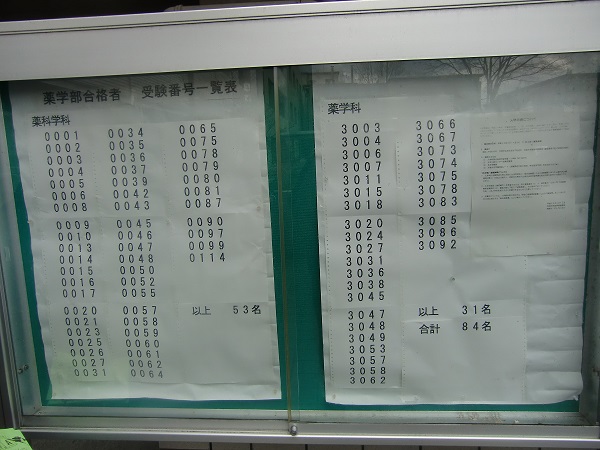 薬学部合格者 受験番号一覧表
薬科学科
0001
0002
0003
0004
0005
0006
0008
0009
0010
0013
0014
0015
0016
0017
0020
0021
0023
0025
0026
0027
0031
0034
0035
0036
0037
0039
0042
0043
0045
0046
0047
0048
0050
0052
0055
0057
0058
0059
0060
0061
0062
0064
0065
0075
0078
0079
0080
0081
0087
0090
0097
0099
0114
以上 53名
薬学科
3003
3004
3006
3007
3011
3015
3018
3020
3024
3027
3031
3036
3038
3045
3047
3048
3049
3053
3057
3058
3062
3066
3067
3073
3074
3075
3078
3083
3085
3086
3092
以上 31名
合計 84名